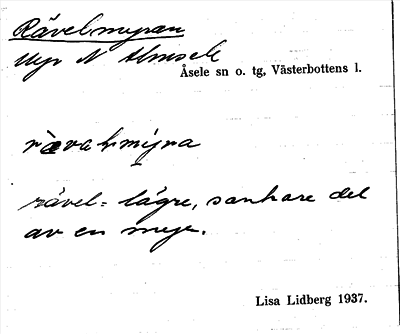 Rävelmyran
Myr N Almsele
Åsele sn o. tg, Västerbottens l.
rävel = lägre, sankare del
av en myr.
Lisa Lidberg 1937.